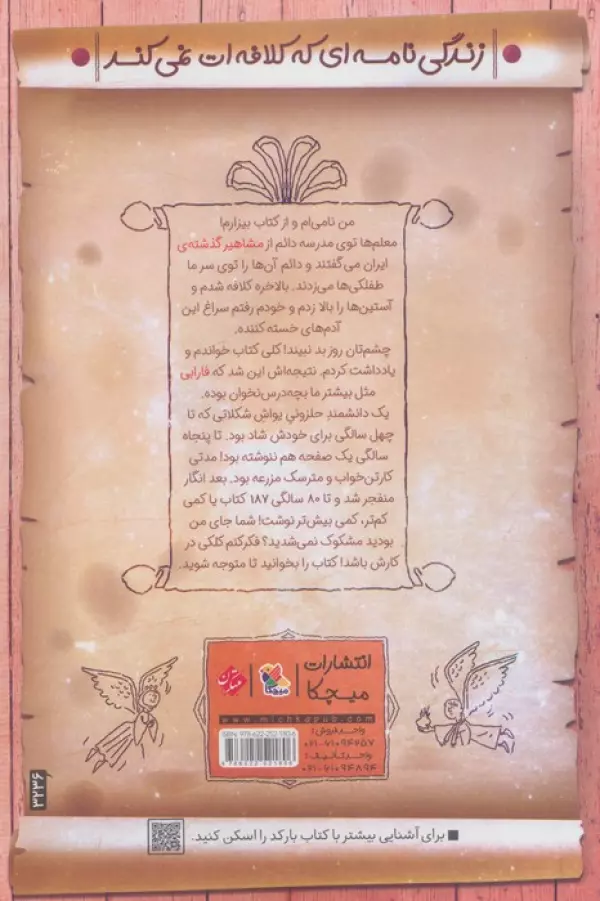 زندگی نامه ای که کلافه ات نمی کند
من نامی‌ام و از کتاب بیزارم!
معلم‌ها توی مدرسه دائم از مشاهیر گذشته‌ی
ایران می‌گفتند و دائم آن‌ها را توی سر ما
طفلکی‌ها می‌زدند. بالاخره کلافه شدم و
آستین‌ها را بالا زدم و خودم رفتم سراغ این
آدم‌های خسته کننده.
چشم‌تان روز بد نبیند! کلی کتاب خواندم و
یادداشت کردم. نتیجه‌اش این شد که فارابی
مثل بیشتر ما بچه‌درس‌نخوان بوده.
یک دانشمندِ حلزونیِ یواشِ شکلاتی که تا
چهل سالگی برای خودش شاد بود. تا پنجاه
سالگی یک صفحه هم ننوشته بود! مدتی
کارتن‌خواب و مترسک مزرعه بود. بعد انگار
منفجر شد و تا ۸۰ سالگی ۱۸۷ کتاب یا کمی
کم‌تر، کمی بیش‌تر نوشت! شما جای من
بودید مشکوک نمی‌شدید؟ فکرکنم کلکی در
کارش باشد! کتاب را بخوانید تا متوجه شوید.
انتشارات
میچکا
میچکا
مبتکران
www.michkapub.com
واحد فروش:
۰۲۱-۶۱۰۹۴۲۵۷
واحد تالیف:
۰۲۱-۶۱۰۹۴۸۹۴
برای آشنایی بیشتر با کتاب بارکد را اسکن کنید.